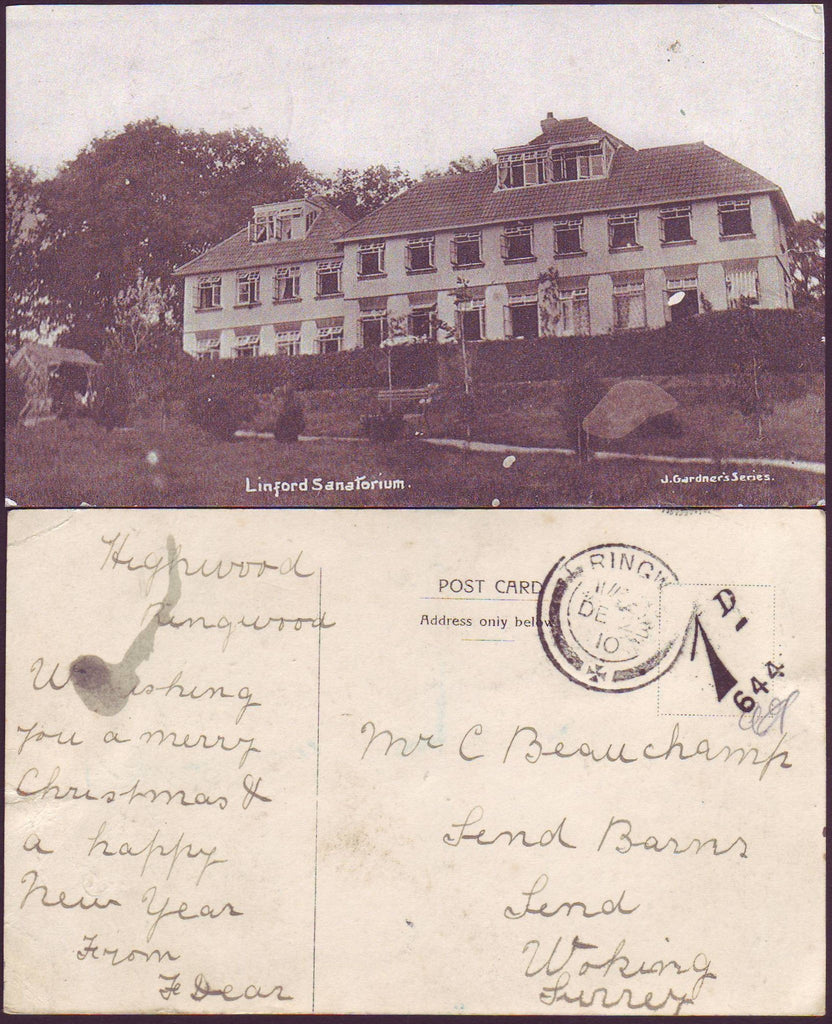 Linford Sanatorium.
J. Gardner's Series.
Highwood
Ringwood
Wishing
you a merry
Christmas &
a happy
New Year
From
F Dear
POST CARD
Address only below
RINGW
DE
10
D
644
Mr C Beauchamp
Send Barns
Send
Woking
Surrey